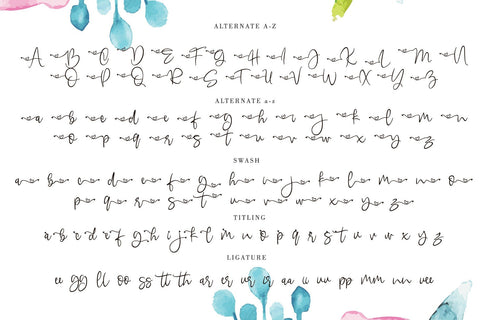 ALTERNATE A-Z
A B C D E F G H I J K L M N
O P Q R S T U V W X Y Z
ALTERNATE a-z
a b c d e f g h i j k l m n
o p q r s t u v w x y z
SWASH
a b c d e f g h i j k l m n o
p q r s t u v w x y z
TITLING
a b c d e f g h i j k l m n o p q r s t u v w x y z
LIGATURE
ee gg ll oo ss tt th ar er ur ir aa ii uu pp mm nn vee